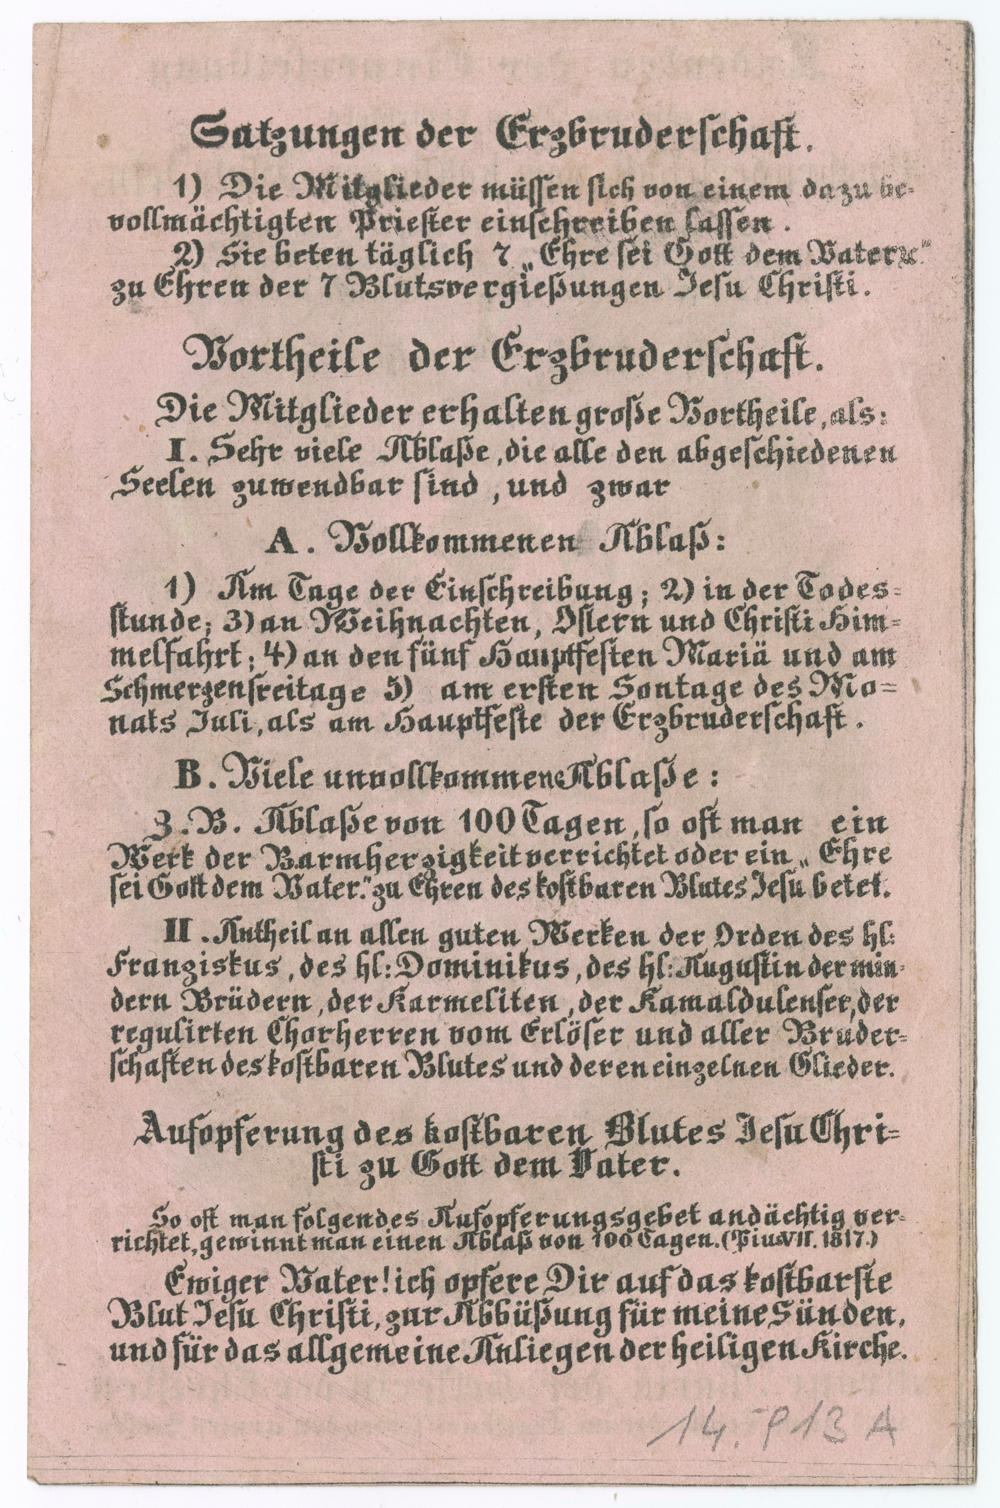 Satzungen der Erzbruderschaft.
1) Die Mitglieder müssen sich von einem dazu be-
vollmächtigten Priester einschreiben lassen.
2) Sie beten täglich 7 „Ehre sei Gott dem Vater ꝛc“
zu Ehren der 7 Blutsvergießungen Jesu Christi.
Vortheile der Erzbruderschaft.
Die Mitglieder erhalten große Vortheile, als:
I. Sehr viele Ablaße, die alle den abgeschiedenen
Seelen zuwendbar sind, und zwar
A. Vollkommenen Ablaß:
1) Am Tage der Einschreibung; 2) in der Todes=
stunde; 3) an Weihnachten, Ostern und Christi Him=
melfahrt; 4) an den fünf Hauptfesten Mariä und am
Schmerzensfreitage 5) am ersten Sontage des Mo=
nats Juli, als am Hauptfeste der Erzbruderschaft.
B. Viele unvollkommene Ablaße:
Z.B. Ablaße von 100 Tagen, so oft man ein
Werk der Barmherzigkeit verrichtet oder ein „Ehre
sei Gott dem Vater.“ zu Ehren des kostbaren Blutes Jesu betet.
II. Antheil an allen guten Werken der Orden des hl:
Franziskus, des hl: Dominikus, des hl: Augustin der min-
dern Brüdern, der Karmeliten, der Kamaldulenser, der
regulirten Chorherren vom Erlöser und aller Bruder=
schaften des kostbaren Blutes und deren einzelnen Glieder.
Aufopferung des kostbaren Blutes Jesu Chri=
sti zu Gott dem Vater.
So oft man folgendes Aufopferungsgebet andächtig ver-
richtet, gewinnt man einen Ablaß von 100 Tagen. (Pius VII. 1817.)
Ewiger Vater! ich opfere Dir auf das kostbarste
Blut Jesu Christi, zur Abbüßung für meine Sünden,
und für das allgemeine Anliegen der heiligen Kirche.
14. 913 A